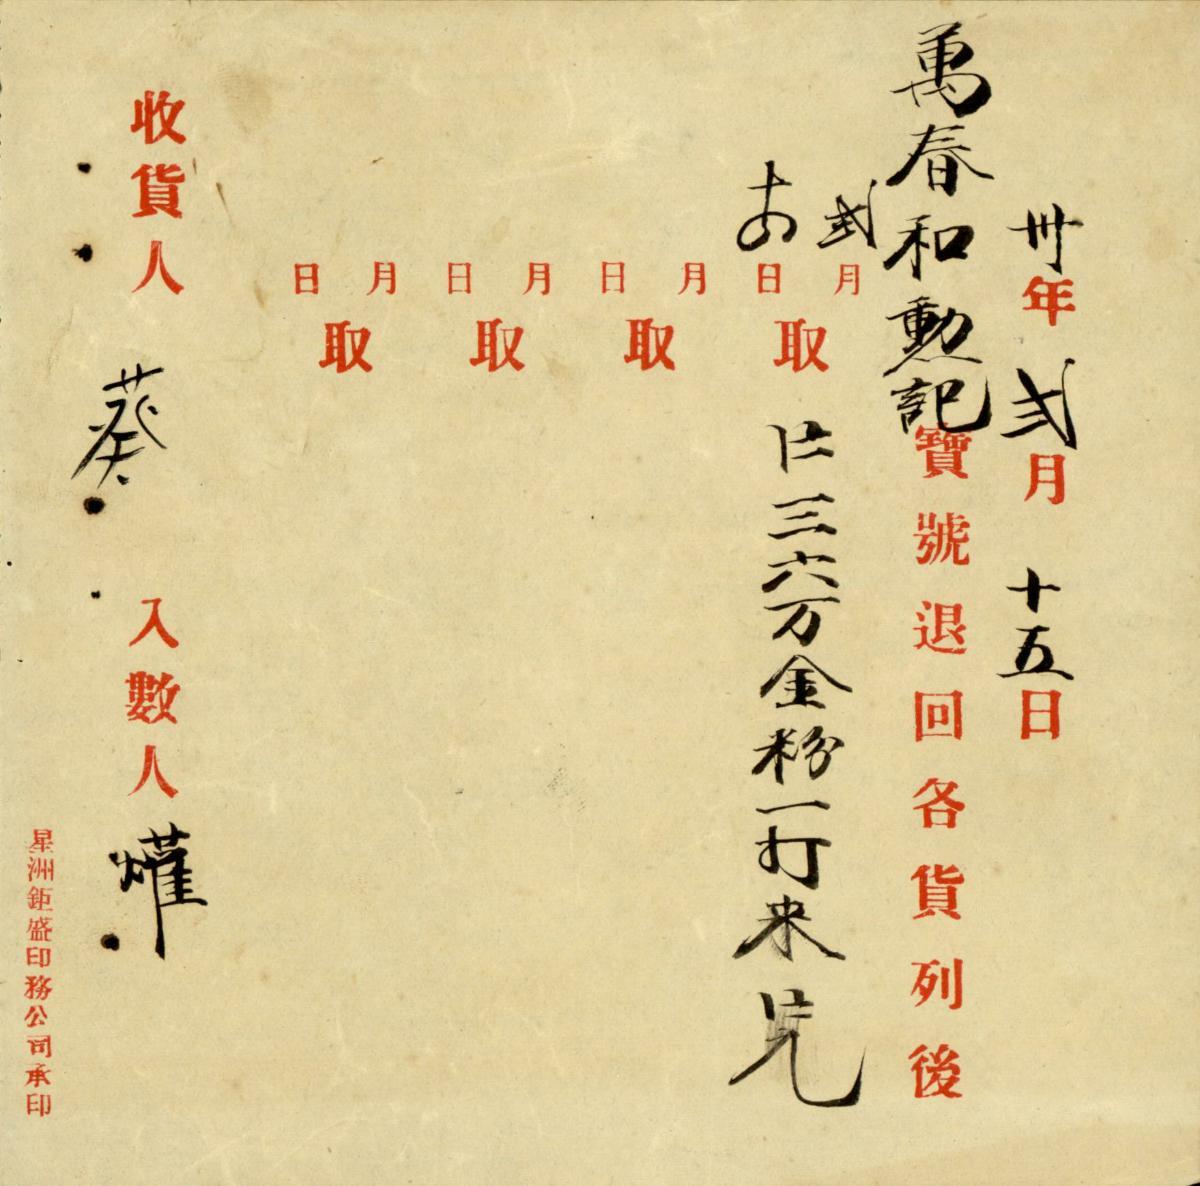 卅年弍月十五日
萬春和勳記寶號退回各貨列後
弍月
日取
三六万金粉一打来
月日取
月日取
月日取
收貨人 葵 入數人 㩲
星洲鉅盛印務公司承印